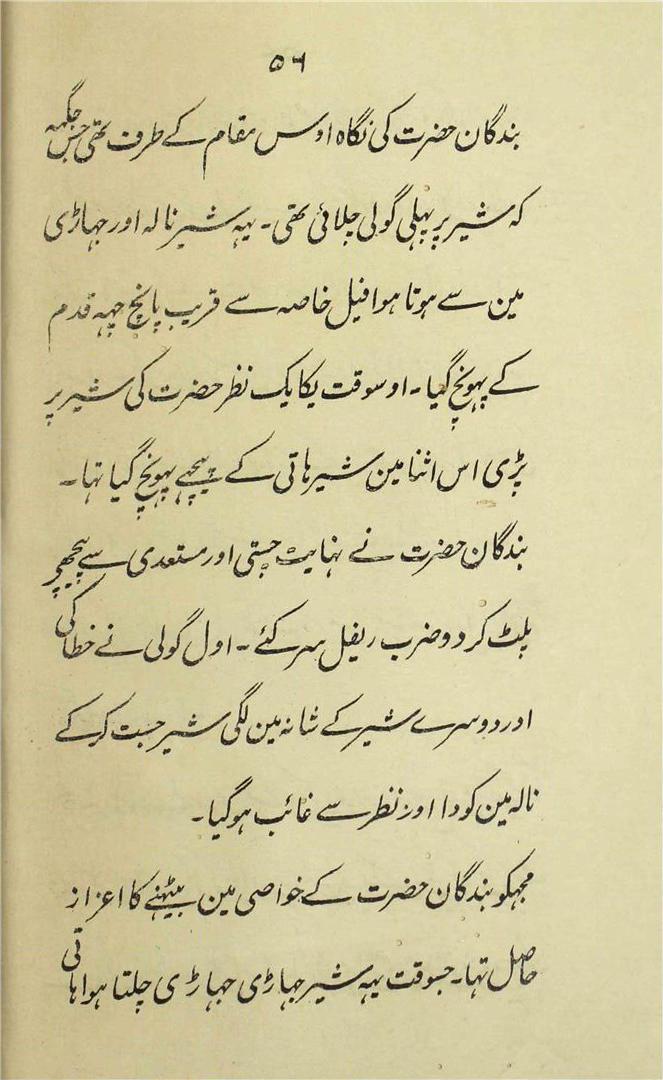 ۵۶
بندگان حضرت کی نگاہ اوس مقام کے طرف تھی جس جگہہ
کہ شیر پر پہلی گولی چلائی تھی۔ یہہ شیر نالہ اور جہاڑی
مین سے ہوتا ہوا فیل خاصہ سے قریب پانچ چہہ قدم
کے پہونچ گیا۔ اوسوقت یکایک نظر حضرت کی شیر پر
پڑی اس اثنا مین شیر ہاتی کے پیچہے پہونچ گیا تہا۔
بندگان حضرت نے نہایت چستی اور مستعدی سے پیچھے
پلٹ کر دو ضرب ریفل سر کئے۔ اول گولی نے خطا کی
اور دوسرے شیر کے شانہ مین لگی شیر جست کر کے
نالہ مین کودا اور نظر سے غائب ہوگیا۔
مجہکو بندگان حضرت کے خواصی مین بیٹہنے کا اعزاز
حاصل تہا۔ جسوقت یہہ شیر جہاڑی جہاڑی چلتا ہوا ہاتی